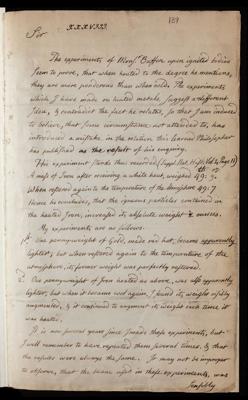 XXXVIII
189
Sir
The experiments of Monsr. Buffon upon ignited bodies
seem to prove, that when heated to the degree he mentions,
they are more ponderous than when cold. The experiments
which I have made on heated metals, suggest a different
Idea, & contradict the fact he relates, so that I am induced
to believe, that some circumstance not attended to, has
introduced a mistake in the relation this learned Philosopher
has published as the result of his enquiry.
His experiment stands thus recorded (Suppl. Nat. Hist. Vol. 2 Page 11)
A mass of Iron after receiving a white heat, weighed 49: 9
When reduced again to the temperature of the atmosphere 49: 7
Hence he concludes, that the igneous particles contained in
the heated Iron, increased its absolute weight ounces.
My experiments are as follows.
1st. One pennyweight of Gold, made red hot, became apparently
lighter; but when reduced again to the temperature of the
atmosphere, its former weight was perfectly restored.
2 One pennyweight of Iron heated as above, was also apparently
lighter, but when it became cool again, I found its weight visibly
augmented, & it continued to augment its weight each time it
was heated.
It is now several years since I made these experiments, but
I well remember to have repeated them several times, & that
the results were always the same. It may not be improper
to observe, that the beam used in these experiments, was
sensibly